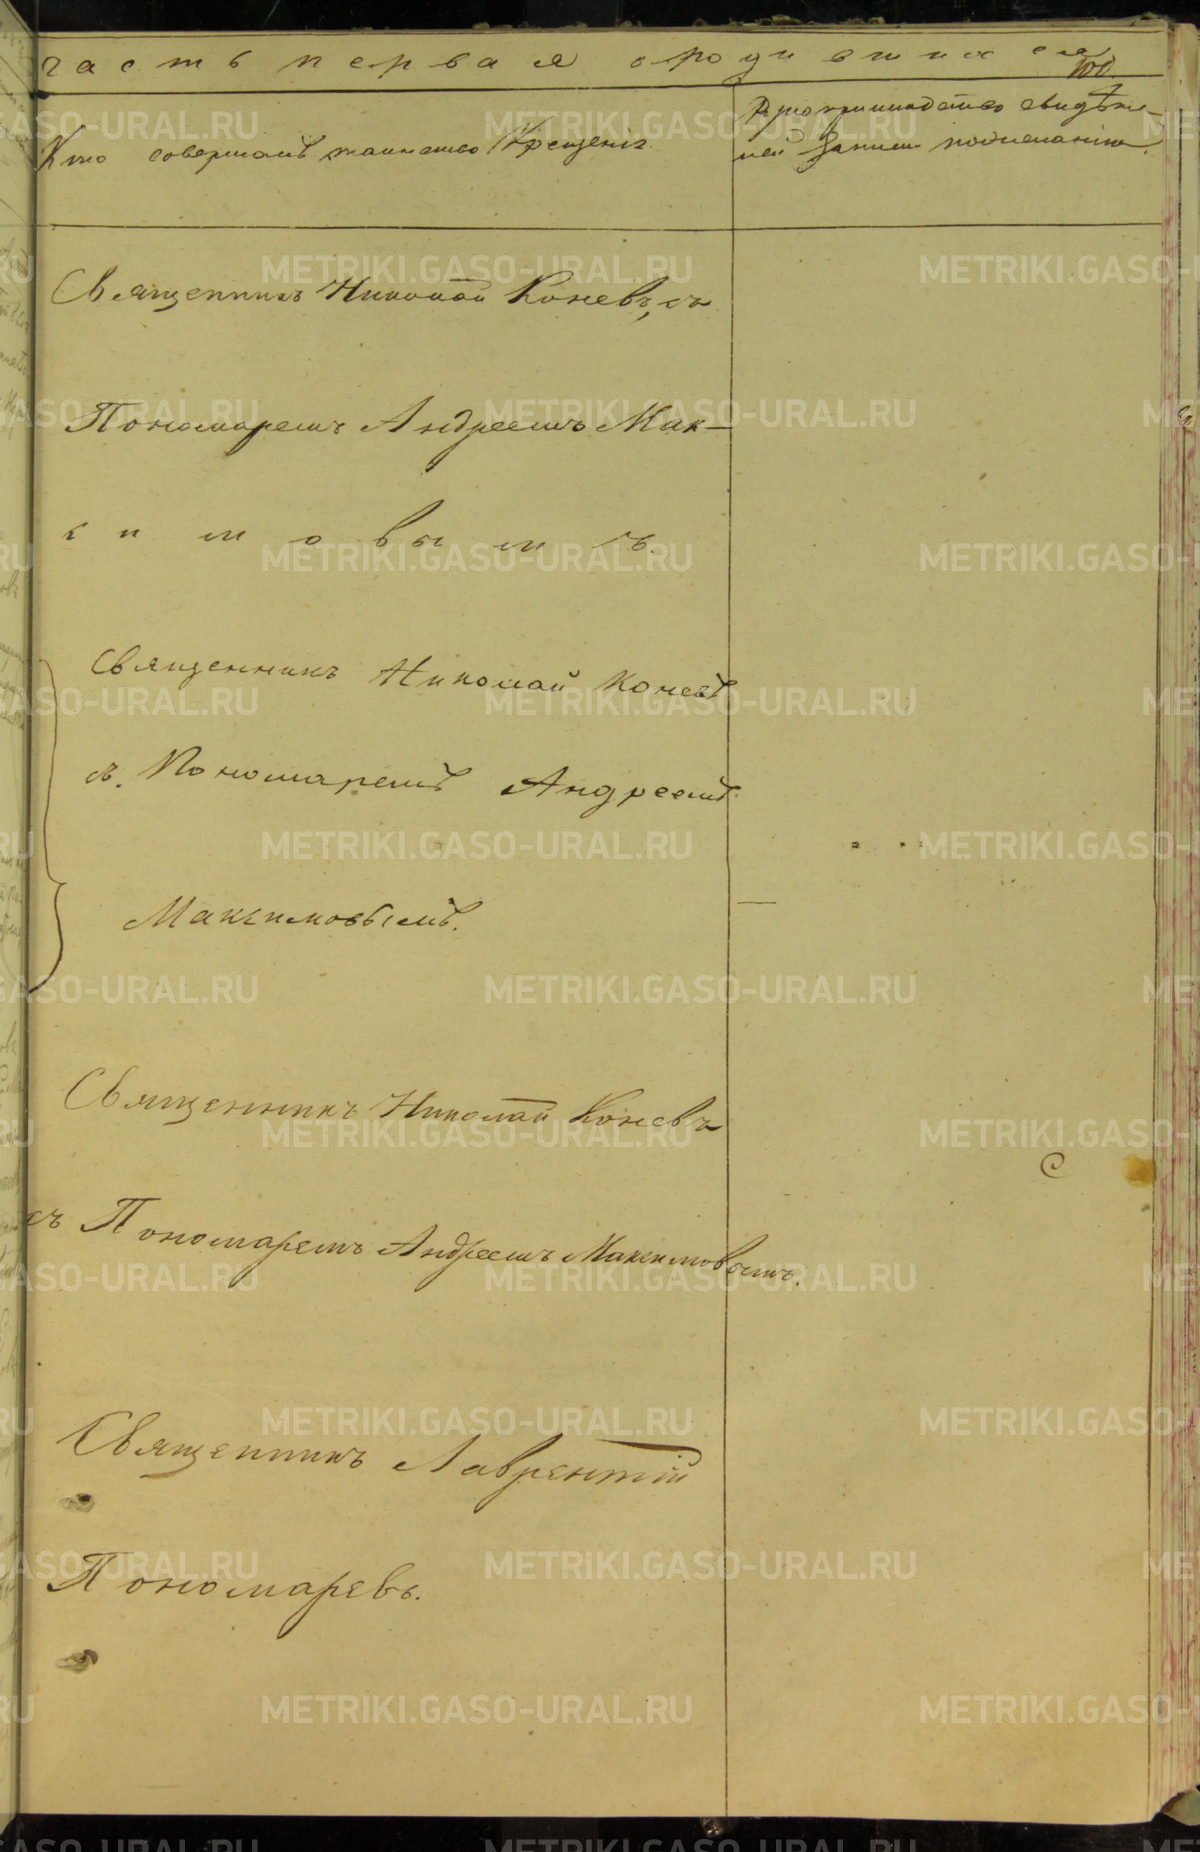 часть первая о родившихся
100
Кто совершалъ таинство Крещенія
Рукоприкладство свидѣте-
лей записи по желанію.
Священникъ Николай Коневъ, съ
Пономаремъ Андреемъ Мак-
симовымъ.
Священникъ Николай Коневъ
съ Пономаремъ Андреемъ
Максимовымъ.
Священникъ Николай Коневъ
съ Пономаремъ Андреемъ Максимовымъ.
Священникъ Лаврентій
Пономаревъ.
METRIKI.GASO-URAL.RU